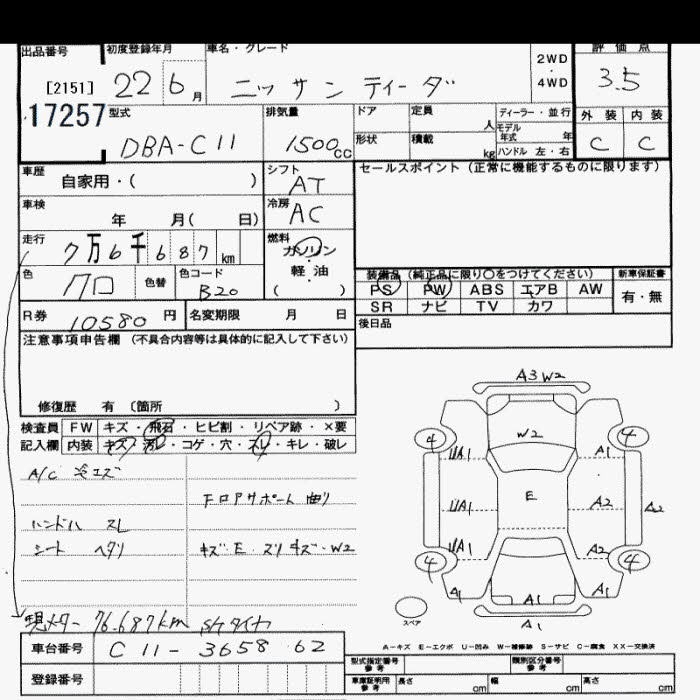 出品番号 初度登録年月 車名・グレード 2WD 評価点
[2151] 22 6月 ニッサン ティーダ 4WD 3.5
17257 型式 DBA-C11 排気量 1500cc
ドア 定員 人 ディーラー・並行 外装 内装
形状 積載 kg モデル年式 年 C C
ハンドル 左・右
車歴 自家用・( ) シフト AT セールスポイント (正常に機能するものに限ります)
車検 年 月( 日) 冷房 AC
走行 7万6千687km 燃料 ガソリン
軽・油
( )
色 クロ 色替 色コード B20
装備品 (純正品に限り○をつけてください) 新車保証書
PS PW ABS エアB AW 有・無
SR ナビ TV カワ
R券 10580円 名変期限 月 日 後日品
注意事項申告欄 (不具合内容等は具体的に記入して下さい)
修復歴 有 〔箇所 〕
検査員 FW キズ・飛石・ヒビ割・リペア跡・×要
記入欄 内装 キズ・汚レ・コゲ・穴・スレ・キレ・破レ
A/C
フロアサポート 曲り
ハンドル スレ
シート ヘタリ
キズ・E・スリキズ・W2
現メーター 76.687km
車台番号 C11-365862
登録番号
A3 W2
4 W2 4
A1 A1
A1 E A2 A2
A1 A2
4 4
A1 A1 A1
A1
スペア
A-キズ E-エクボ U-凹み W-補修跡 S-サビ C-腐食 XX-交換済
型式指定番号 参考 類別区分番号 参考
車庫証明用 参考 長さ cm 幅 cm 高さ cm